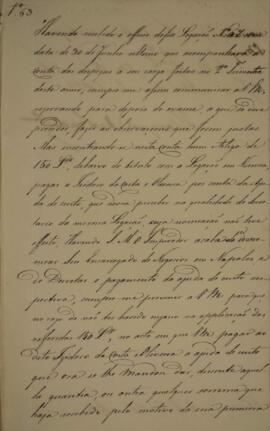 Nº 63
Havendo recebido o officio dessa Legação Nº
data de 30 de Junho ultimo que acompanhava a
conta das despezas a seu cargo feitas no 2º Trimestre
deste anno, cumpre-me apenas communicar a V Mce
reservando para depois do exame, a que se deve
proceder, fazer as observaçoens que forem justas.
Mas encontrando-se nesta conta hum Artigo de
150 debaixo do titulo
pagos a Teodoro da Costa e Oliveira por conta da Aju
da de custo, que devia perceber na qualidade de Secre
tario da mesma Legação, cuja nomeação não teve
effeito, Havendo S. M. O Imperador acabado de no
mear Seu Encarregado de Negocios em Napoles e
do Decretar o pagamento da ajuda de custo res
pectiva, cumpre-me prevenir a V Mce para que
no caso de não ter havido engano na applicação das
referidas 150 no acto em que V Mce pagar ao
dito Teodoro da Costa e Oliveira a ajuda de custo
que ora se lhe Mandou dar, desconte aquel
la quantia, ou outra qualquer somma que
haja recebido pelo motivo da sua primeira